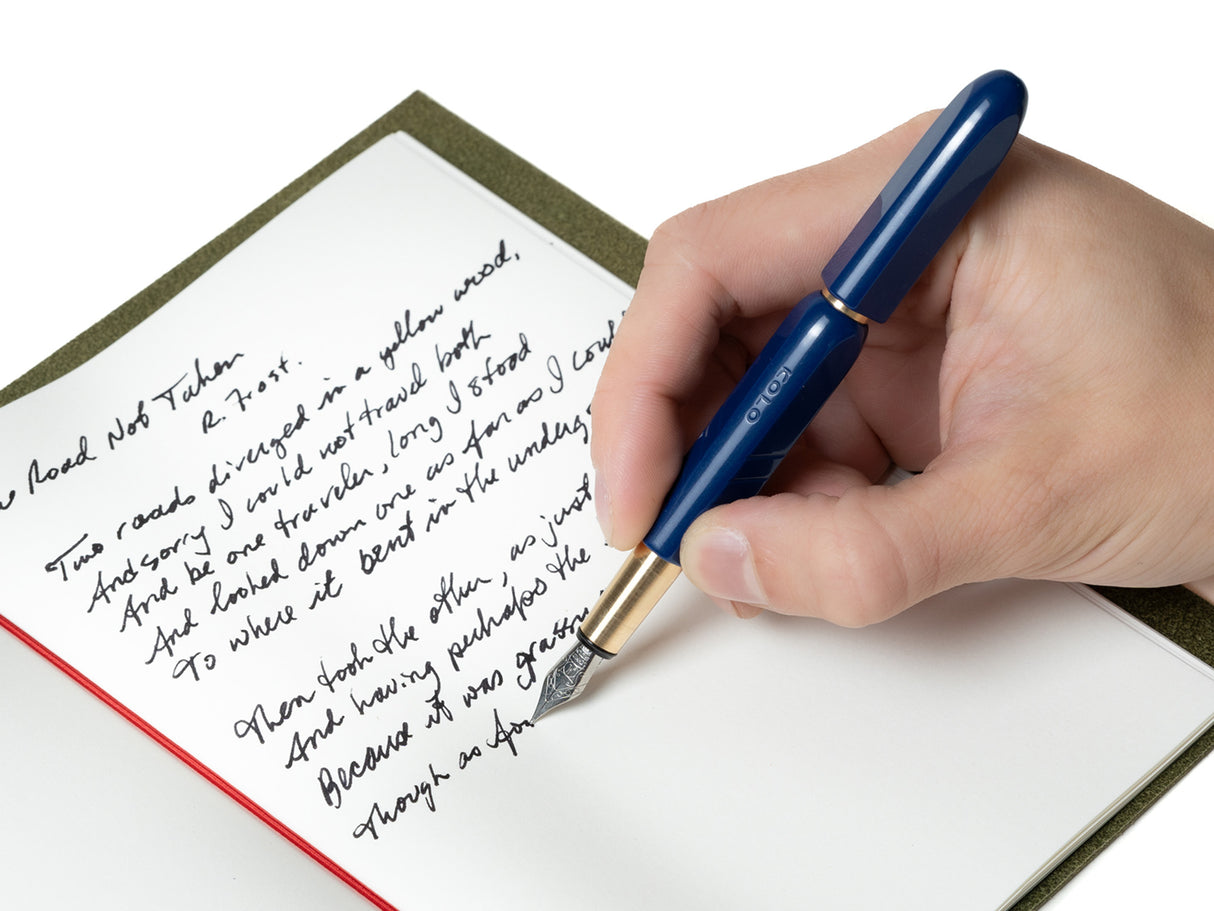 Road Not Taken
R. Frost.
Two roads diverged in a yellow wood,
And sorry I could not travel both
And be one traveler, long I stood
And looked down one as far as I could
To where it bent in the underg
Then took the other, as just
And having perhaps the
Because it was grassy
Though as for
KOLO